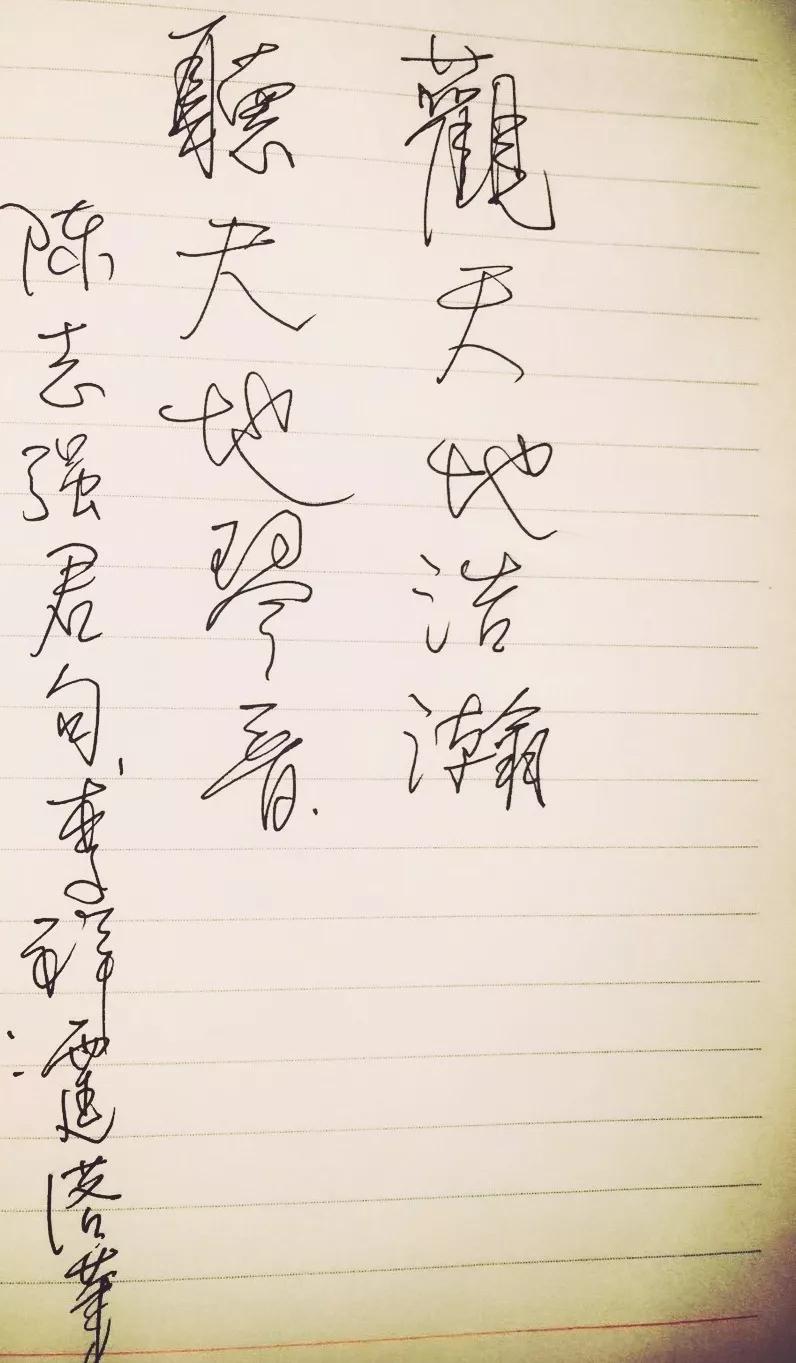 觀天地浩瀚
聽天地琴音.
陈志强君句、李祥霆落笔